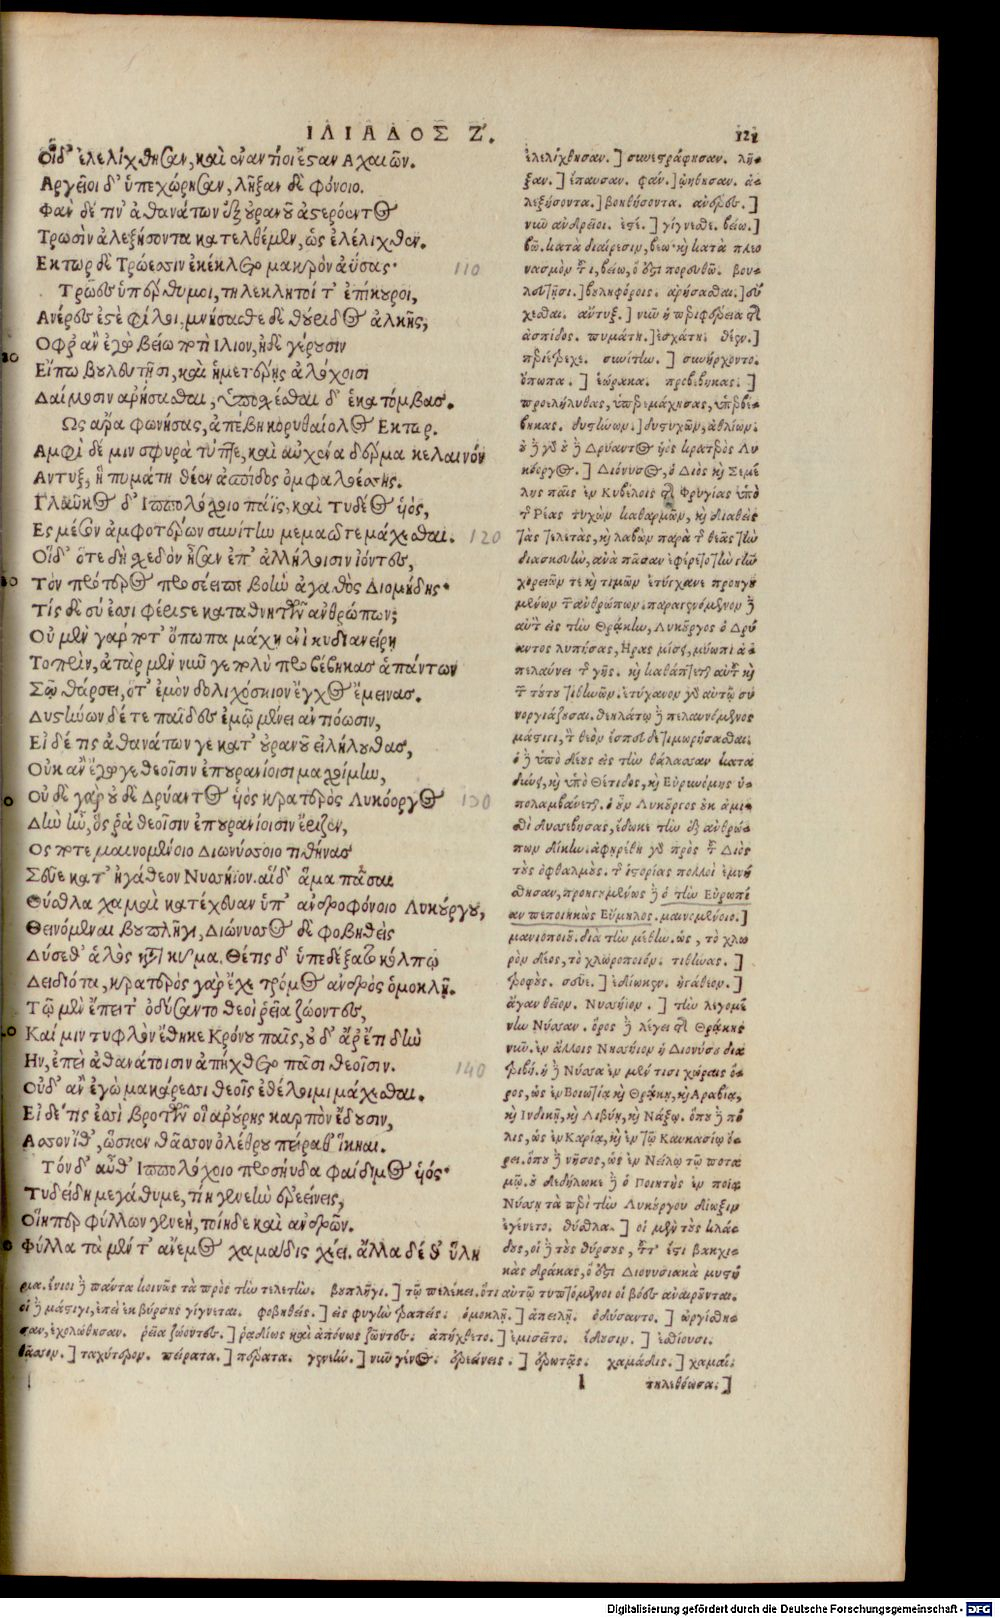 ΙΛΙΑΔΟΣ Ζ. 121
Οἱ δ᾽ ἐλελίχθησαν, καὶ ἐναντίοι ἔσταν Αχαιῶν.
Αργεῖοι δ᾽ ὑπεχώρησαν, λῆξαν δὲ φόνοιο.
Φὰν δέ τιν᾽ ἀθανάτων ἐξ οὐρανοῦ ἀστερόεντος
Τρωσὶν ἀλεξήσοντα κατελθέμεν, ὡς ἐλέλιχθεν.
Εκτωρ δὲ Τρώεσσιν ἐκέκλετο μακρὸν ἀΰσας· 110
Τρῶες ὑπέρθυμοι, τηλεκλητοί τ᾽ ἐπίκουροι,
Ανέρες ἐστὲ φίλοι, μνήσασθε δὲ θούριδος ἀλκῆς,
Οφρ᾽ ἂν ἐγὼ βείω ποτὶ Ιλιον, ἠδὲ γέρουσιν
Εἴπω βουλευτῇσι, καὶ ἡμετέρῃς ἀλόχοισι
Δαίμοσιν ἀρήσασθαι, ὑποσχέσθαι δ᾽ ἑκατόμβας.
Ως ἄρα φωνήσας, ἀπέβη κορυθαίολος Εκτωρ.
Αμφὶ δέ μιν σφυρὰ τύπτε, καὶ αὐχένα δέρμα κελαινόν
Αντυξ, ἣ πυμάτη θέεν ἀσπίδος ὀμφαλοέσσης.
Γλαῦκος δ᾽ Ιππολόχοιο πάϊς, καὶ Τυδέος ὑιός,
Ες μέσον ἀμφοτέρων συνίτην μεμαῶτε μάχεσθαι. 120
Οἱ δ᾽ ὅτε δὴ σχεδὸν ἦσαν ἐπ᾽ ἀλλήλοισιν ἰόντες,
Τὸν πρότερος προσέειπε βοὴν ἀγαθὸς Διομήδης·
Τίς δὲ σύ ἐσσι φέριστε καταθνητῶν ἀνθρώπων;
Οὐ μὲν γάρ ποτ᾽ ὄπωπα μάχῃ ἐνὶ κυδιανείρῃ
Το πρὶν, ἀτὰρ μὲν νῦν γε πολὺ προβέβηκας ἁπάντων
Σῷ θάρσει, ὅτ᾽ ἐμὸν δολιχόσκιον ἔγχος ἔμεινας.
Δυστήνων δέ τε παῖδες ἐμῷ μένει ἀντιόωσιν,
Εἰ δέ τις ἀθανάτων γε κατ᾽ οὐρανοῦ εἰλήλουθας,
Οὐκ ἂν ἔγωγε θεοῖσιν ἐπουρανίοισι μαχοίμην,
Οὐδὲ γὰρ οὐδὲ Δρύαντος ὑιὸς κρατερὸς Λυκόοργος 130
Δὴν ἦν, ὅς ῥα θεοῖσιν ἐπουρανίοισιν ἔριζεν,
Ος ποτε μαινομένοιο Διωνύσοιο τιθήνας
Σεῦε κατ᾽ ἠγάθεον Νυσήϊον. αἱ δ᾽ ἅμα πᾶσαι
Θύσθλα χαμαὶ κατέχευαν ὑπ᾽ ἀνδροφόνοιο Λυκούργου,
Θεινόμεναι βουπλῆγι, Διώνυσος δὲ φοβηθεὶς
Δύσεθ᾽ ἁλὸς κατὰ κῦμα. Θέτις δ᾽ ὑπεδέξατο κόλπῳ
Δειδιότα, κρατερὸς γὰρ ἔχε τρόμος ἀνδρὸς ὁμοκλῇ.
Τῷ μὲν ἔπειτ᾽ ὀδύσαντο θεοὶ ῥεῖα ζώοντες,
Καί μιν τυφλὸν ἔθηκε Κρόνου παῖς, οὐδ᾽ ἄρ᾽ ἔτι δὴν
Ην, ἐπεὶ ἀθανάτοισιν ἀπήχθετο πᾶσι θεοῖσιν. 140
Οὐδ᾽ ἂν ἐγὼ μακάρεσσι θεοῖς ἐθέλοιμι μάχεσθαι.
Εἰ δέ τίς ἐσσι βροτῶν οἳ ἀρούρης καρπὸν ἔδουσιν,
Ασσον ἴθ᾽, ὥς κεν θᾶσσον ὀλέθρου πείραθ᾽ ἵκηαι.
Τόν δ᾽ αὖθ᾽ Ιππολόχοιο προσηύδα φαίδιμος ὑιός·
Τυδείδη μεγάθυμε, τίη γενεὴν ἐρεείνεις,
Οἵη περ φύλλων γενεὴ, τοίη δε καὶ ἀνδρῶν.
Φύλλα τὰ μέν τ᾽ ἄνεμος χαμάδις χέει. ἄλλα δέ θ᾽ ὕλη
ἐλελίχθησαν.] συνεστράφησαν. λῆ-
ξαν.] ἔπαυσαν. φάν.] ᾠήθησαν. ἀ-
λεξήσοντα.] βοηθήσοντα. ἀνέρες.]
νῦν ἀνδρεῖοι. ἐστέ.] γίγνεσθε. βείω.]
βῶ. κατὰ διαίρεσιν, βέω καὶ κατὰ πλεο
νασμὸν τοῦ ι, βείω, ὅ ἐστι πορευθῶ. βου-
λευτῇσι.] βουληφόροις. ἀρήσασθαι.] εὔ
χεσθαι. ἄντυξ.] νῦν ἡ περιφέρεια τῆς
ἀσπίδος. πυμάτη.] ἐσχάτη. θέεν.]
περιέτρεχε. συνίτην.] συνήρχοντο.
ὄπωπα.] ἑώρακα. προβέβηκας.]
προελήλυθας, ὑπερεμάχησας, ὑπερβέ-
βηκας. δυστήνων.] δυστυχῶν, ἀθλίων.
κόοργος.] Διόνυσος, ὁ Διὸς καὶ Σεμέ
λης παῖς ἐν Κυβέλοις τῆς Φρυγίας ὑπὸ
τῆς Ρέας τυχὼν καθαρμῶν, καὶ διαθεὶς
τὰς τελετὰς, καὶ λαβὼν παρὰ τῆς θεᾶς τὴν
διασκευὴν, ἀνὰ πᾶσαν ἐφέρετο τὴν γῆν
χορειῶν τε καὶ τιμῶν ἐτύγχανε προηγου
μένων τῶν ἀνθρώπων. παραγενόμενον δὲ
αὐτὸν εἰς τὴν Θρᾴκην, Λυκοῦργος ὁ Δρύ
αντος λυπήσας, Ηρας μίσει, μύωπι ἀ-
πελαύνει τῆς γῆς. καὶ καθάπτεται αὐτοῦ καὶ
τῶν τούτου τιθηνῶν. ἐτύγχανον γὰρ αὐτῷ συ
νοργιάζουσαι. θεηλάτῳ δὲ πελαυνόμενος
μάστιγι, τὸν θεὸν ἔσπευδε τιμωρήσασθαι.
ὁ δὲ ὑπὸ δέους εἰς τὴν θάλασσαν κατα
δύνει, καὶ ὑπὸ Θέτιδος, καὶ Εὐρυνόμης ὑ-
πολαμβάνεται. ὁ οὖν Λυκοῦργος οὐκ ἀμι-
σθὶ δυσσεβήσας, ἔδωκε τὴν ἐξ ἀνθρώ-
πων δίκην. ἀφῃρέθη γὰρ πρὸς τοῦ Διὸς
τοὺς ὀφθαλμούς. τῆς ἱστορίας πολλοὶ ἐμνή
σθησαν, προηγουμένως δὲ ὁ τὴν Εὐρωπί
αν πεποιηκὼς Εὔμηλος. μαινομένοιο.]
μανιοποιοῦ. διὰ τὴν μέθην. ὡς, τὸ χλω
ρὸν δέος, τὸ χλωροποιόν. τιθήνας.]
τροφούς. σεῦε.] ἐδίωκεν. ἠγάθεον.]
ἄγαν θεῖον. Νυσήϊον.] τὴν λεγομέ
νην Νύσαν. ὄρος δὲ λέγει τῆς Θρᾴκης
ρος, ὡς ἐν Βοιωτίᾳ καὶ Θρᾴκῃ, καὶ Αραβίᾳ,
καὶ Ινδικῇ, καὶ Λιβύῃ, καὶ Νάξῳ. ὅπου δὲ πό
λις, ὡς ἐν Καρίᾳ, καὶ ἐν τῷ Καυκασίῳ ὄ-
ρει. ὅπου δὲ νῆσος, ὡς ἐν Νείλῳ τῷ ποτα
μῷ. ὃ δεδήλωκε δὲ ὁ Ποιητὴς ἐν ποίᾳ
Νύσῃ τὰ περὶ τὴν Λυκούργου δίωξιν
ἐγένετο. θύσθλα.] οἱ μὲν τοὺς κλά-
δους, οἱ δὲ τοὺς θύρσους, ἔστι βακχι-
κὰς δράκας, ὅ ἐστι Διονυσιακὰ μυστή
ρια. ἔνιοι δὲ πάντα κοινῶς τὰ πρὸς τὴν τελετήν. βουπλῆγι.] τῷ πελέκει. ὅτι αὐτῷ τυπτόμενοι οἱ βόες ἀναιροῦνται.
οἱ δὲ μάστιγι, ἐπεὶ ἐκ βύρσης γίγνεται. φοβηθείς.] εἰς φυγὴν τραπείς. ὁμοκλῇ.] ἀπειλῇ. ὀδύσαντο.] ὠργίσθη-
σαν, ἐχολώθησαν. ῥεῖα ζώοντες.] ῥᾳδίως καὶ ἀπόνως ζῶντες. ἀπήχθετο.] ἐμισεῖτο. ἔδουσιν.] ἐσθίουσι.
θᾶσσον.] ταχύτερον. πείρατα.] πέρατα. γενεήν.] νῦν γένος. ἐρεείνεις.] ἐρωτᾷς. χαμάδις.] χαμαί.
l τηλεθόωσα.]
Digitalisierung gefördert durch die Deutsche Forschungsgemeinschaft - DFG